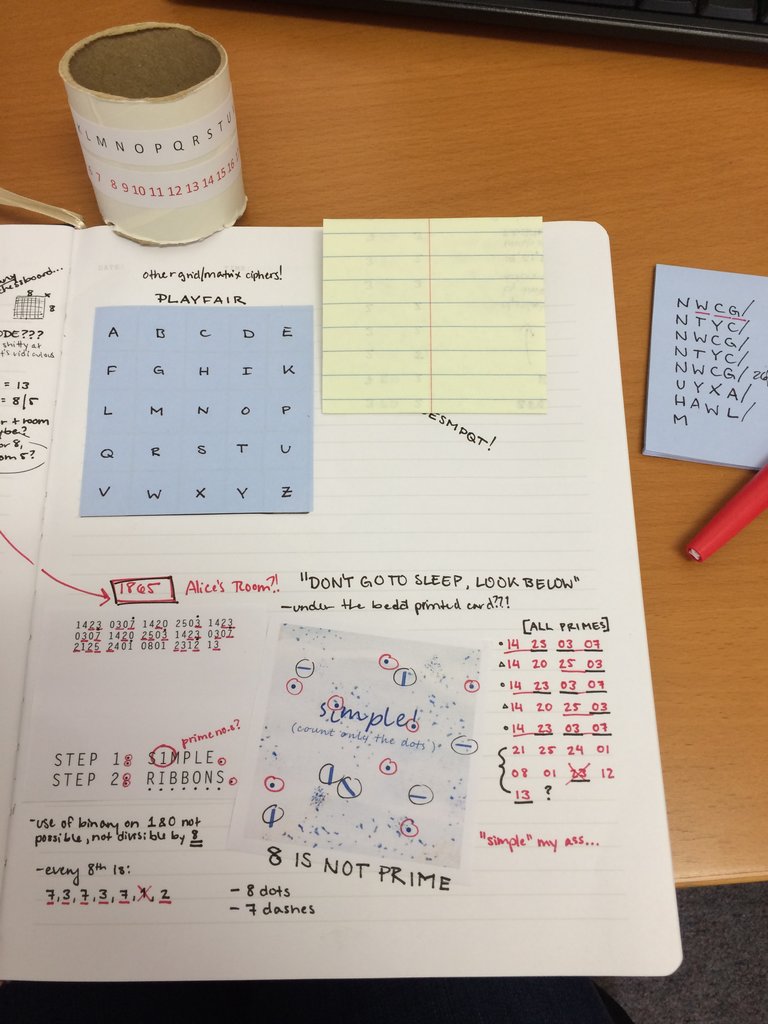 KLMNOPQRSTU
7 8 9 10 11 12 13 14 15 16
other grid/matrix ciphers!
PLAYFAIR
A B C D E
F G H I K
L M N O P
Q R S T U
V W X Y Z
ESMPQT!
NWCG/
NTYC/
NWCG/
NTYC/
NWCG/
UYXA/
HAWL/
M
chessboard...
8
8
ODE???
shitty at
ridiculous
= 13
= 8/5
r + room
or 8,
om 5?
1865 Alice's Room?! "DON'T GO TO SLEEP, LOOK BELOW"
- under the bed? printed card??!
1423 0307 1420 2503 1423
0307 1420 2503 1423 0307
2125 2401 0801 2312 13
[ALL PRIMES]
14 23 03 07
14 20 25 03
14 23 03 07
14 20 25 03
14 23 03 07
21 25 24 01
08 01 23 12
13 ?
simple!
(count only the dots)
prime no.s?
STEP 1: SIMPLE.
STEP 2: RIBBONS.
- use of binary on 1 & 0 not
possible, not divisible by 8
- every 8th is:
7, 3, 7, 3, 7, 1, 2
8 IS NOT PRIME
- 8 dots
- 7 dashes
"simple" my ass...